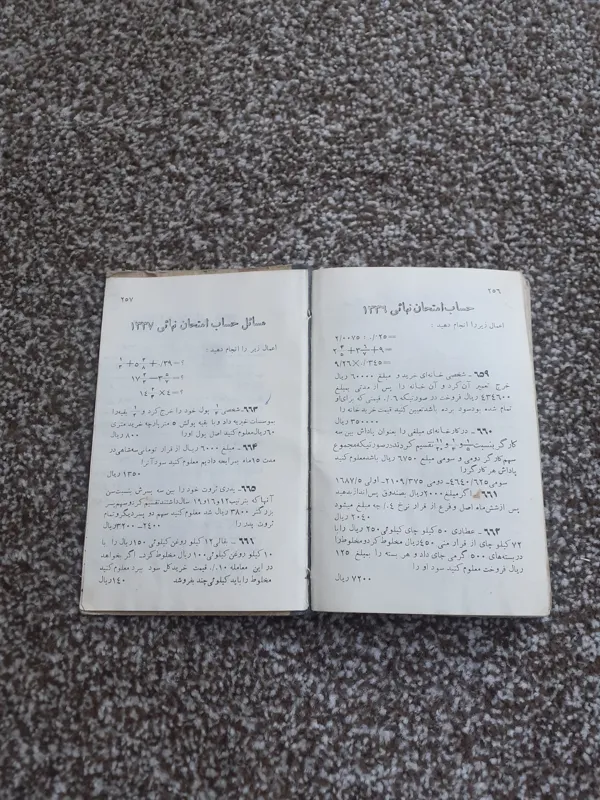 ۲۵۶
حساب امتحان نهائی ۱۳۳۶
اعمال زیر را انجام دهید :
۲/۰۰۷۵ : ۰/۲۵=
۹/۲۶×۰/۳۴۵=
۶۵۹ـ شخصی خانه‌ای خرید و مبلغ ۶۰۰۰۰ ریال
خرج تعمیر آن کرد و آن خانه را پس از مدتی بمبلغ
۴۳۴۶۰۰ ریال فروخت در صورتیکه ٪۶ قیمتی که برای او
تمام شده بود سود برده باشد تعیین کنید قیمت خرید خانه را
۳۵۰۰۰۰ ریال
۶۶۰ـ در کارخانه‌ای مبلغی را بعنوان پاداش بین سه
کارگر بنسبت تقسیم کردند در صورتیکه مجموع
سهم کارگر دومی و سومی مبلغ ۶۷۵۰ ریال باشد معلوم کنید
پاداش هر کارگر را
سومی ۴۶۴۰/۶۲۵ـ دومی ۲۱۰۹/۳۷۵ـ اولی ۱۶۸۷/۵
۶۶۱ـ اگر مبلغ ۲۰۰۰ ریال بصندوق پس انداز بدهید
پس از شش ماه اصل و فرع از قرار نرخ ٪۴ چه مبلغ میشود
۲۰۴۰ ریال
۶۶۲ـ عطاری ۵۰ کیلو چای کیلوئی ۲۵۰ ریال را با
۷۲ کیلو چای از قرار منی ۴۵۰ ریال مخلوط کرد و مخلوط را
در بسته‌های ۵۰۰ گرمی جای داد و هر بسته را بمبلغ ۱۲۵
ریال فروخت معلوم کنید سود او را
۷۲۰۰ ریال
۲۵۷
مسائل حساب امتحان نهائی ۱۳۳۷
اعمال زیر را انجام دهید :
۶۶۳ـ شخصی پول خود را خرج کرد و بقیه را
بمؤسسات خیریه داد و با بقیه پولش ۵ متر پارچه خرید متری
۶۰ ریال معلوم کنید اصل پول او را ۸۰۰ ریال
۶۶۴ـ مبلغ ۶۰۰۰ ریال از قرار تومانی سه شاهی در
مدت ۱۵ ماه بمرابحه دادیم معلوم کنید سود آنرا
۱۳۵۰ ریال
۶۶۵ـ پدری ثروت خود را بین سه پسرش بنسبت سن
آنها که بترتیب ۱۲ و ۱۶ و ۱۹ سال داشتند تقسیم کرد و سهم پسر
بزرگتر ۳۸۰۰ ریال شد معلوم کنید سهم دو پسر دیگر و تمام
ثروت پدر را ۲۴۰۰ـ۳۲۰۰ ریال
۶۶۶ـ بقالی ۱۲ کیلو روغن کیلوئی ۱۵۰ ریال را با
۱۰ کیلو روغن کیلوئی ۱۰۰ ریال مخلوط کرد. اگر بخواهد
در این معامله ٪۱۰ قیمت خرید کل سود ببرد معلوم کنید
مخلوط را باید کیلوئی چند بفروشد ۱۴۰ ریال